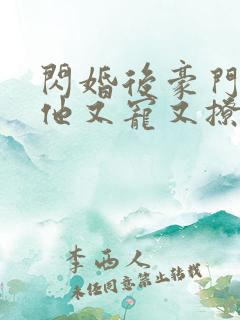 閃婚後豪門
他又寵又撩
李西人
未任同意禁止转载